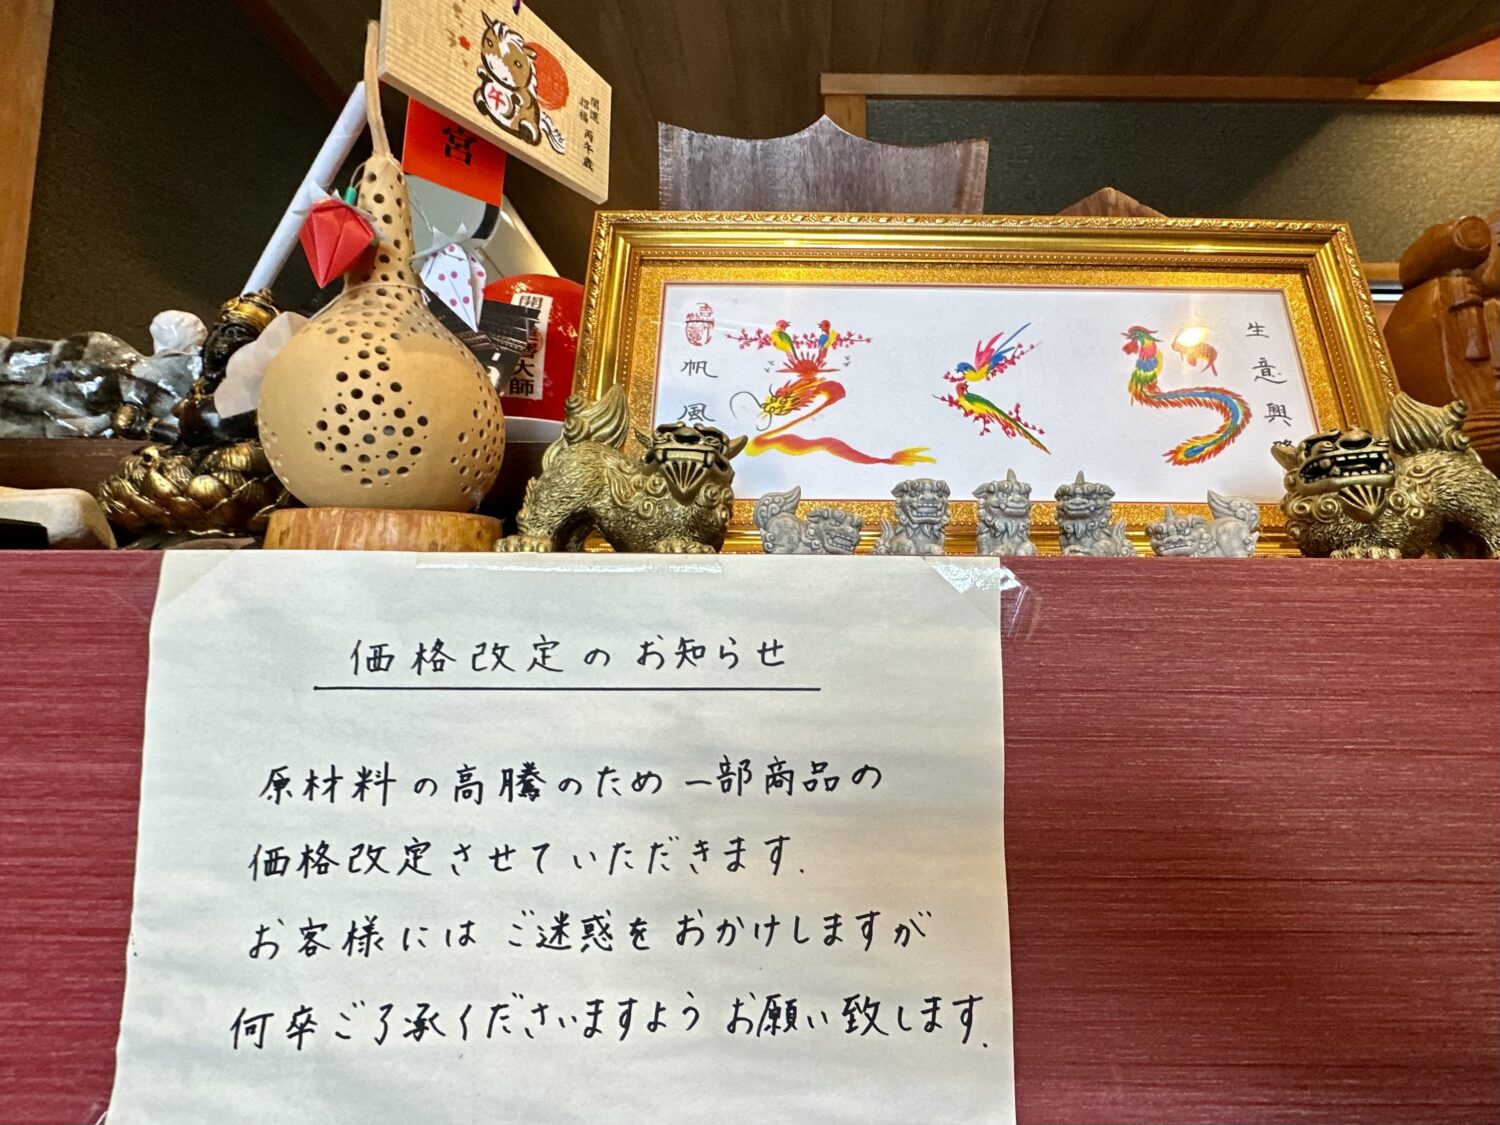 開運
招福
丙午歳
午
宮
大師
帆
風
生意興
価格改定のお知らせ
原材料の高騰のため一部商品の
価格改定させていただきます.
お客様にはご迷惑をおかけしますが
何卒ご了承くださいますようお願い致します.